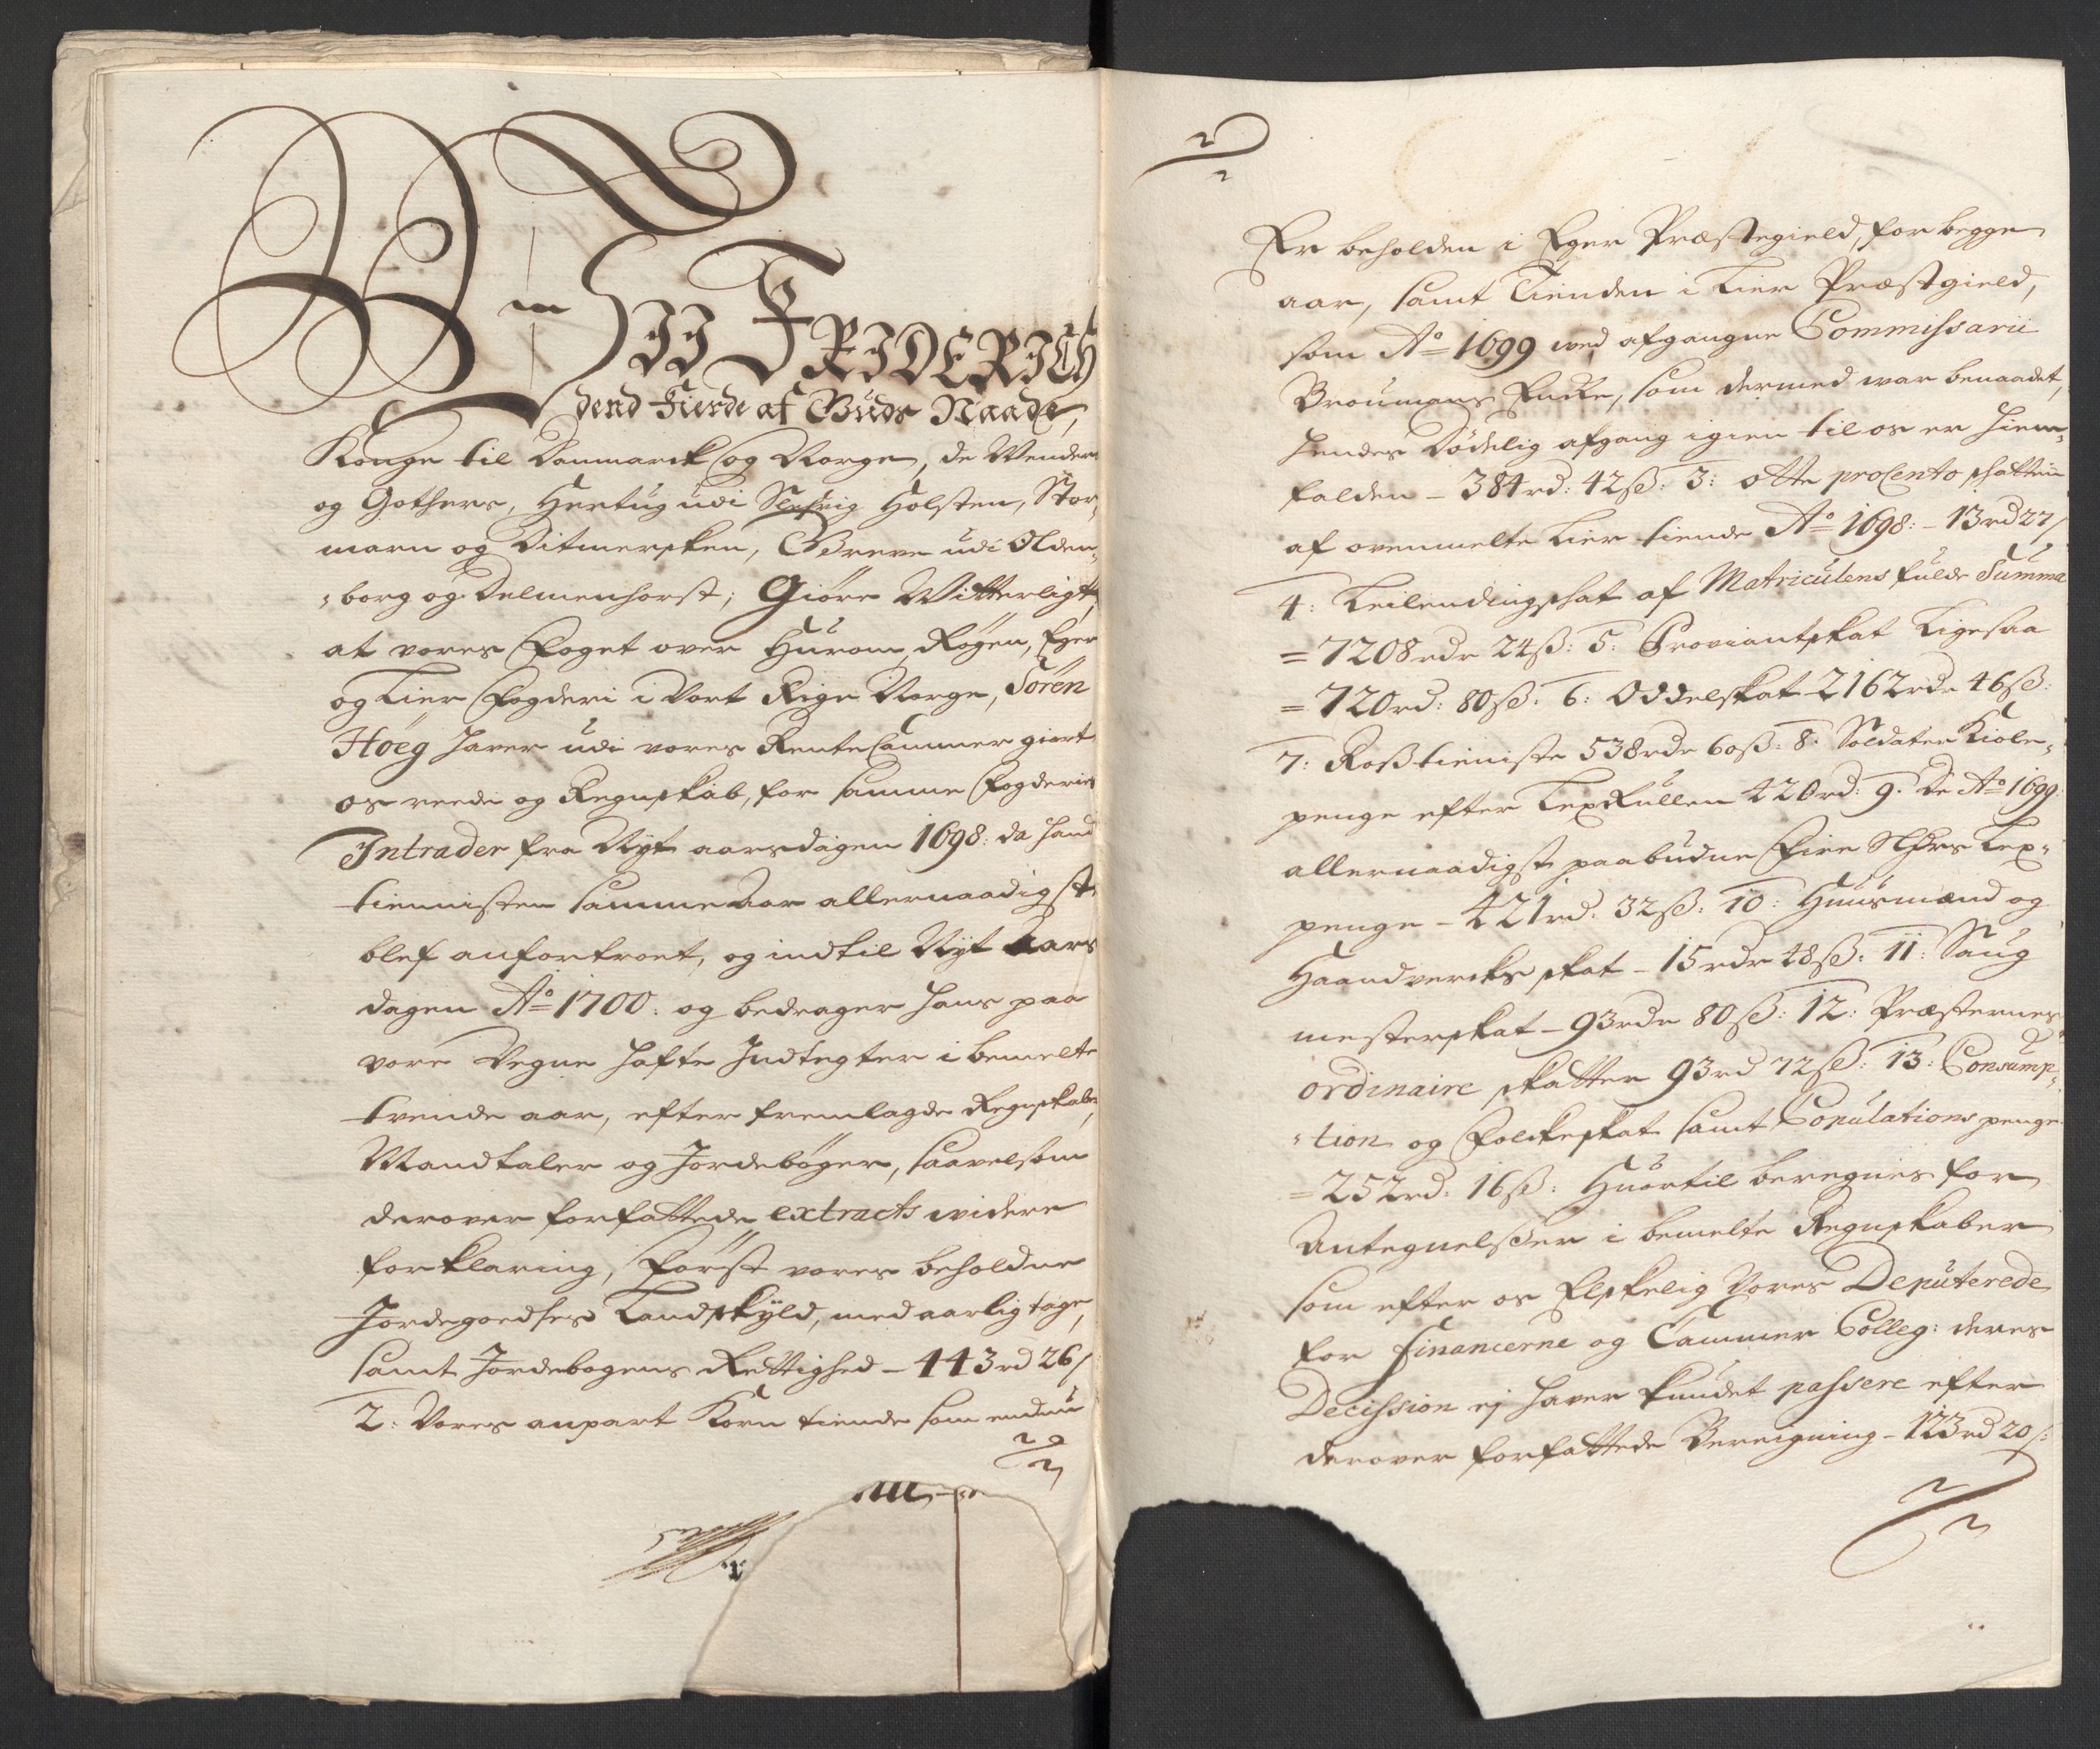 Wii FRIDERICH
dend Fierde af Guds Naade,
Konge til Danmarck og Norge, de Wenders
og Gothers, Hertug udi Slesvig Holsten, Stor,
marn og Ditmersken, Greve udi Olden,
,borg og Delmenhorst; Giöre Witterligt;
at vores Foget over Hurom, Røgen, Eger
og Lier Fogderi i Vort Rige Norge, Sören
Höeg haver udi vores Rente Cammer giort
os reede og Regnskab, for samme Fogderies
Intrader fra Nyt aarsdagen 1698: da hand
tiennisten samme Aar allernaadigst
blef anfortroet, og indtil Nyt Aars
dagen Aō 1700: og bedrager hans paa
vore Vegne hafte Indtegter i bemelte
tvende aar, efter fremlagde Regnskaber,
Mandtaler og Jordebøger, saavelsom
derover forfattede extracts widere
forklaring, Först vores beholdne
Jordegoedses Landskyld, med aarlig tage,
samt Jordebogens Rettighed – 443rd 26s
2: Vores anpart Korn tiende som endnu
Er beholden i Eger Præstegield, for begge
aar, samt Tienden i Lier Præstgield,
som Aō 1699 wed afgangne Commissarii
Broumans Enke, som dermed war benaadet,
hendes Dödelig afgang igien til os er hiem,
falden – 384rd: 42ß: 3: otte pro Cento skatten
af ovenmelte Lier tiende Aō 1698: – 13rd 27s
4: Leilendingskat af Matriculens fulde Summa
= 7208rdr 24ß: 5: Proviantskat Ligesaa
= 720rd: 80ß: 6: Oddelskat 2162rdr 46ß:
7: Roßtieniste 538rdr 60ß: 8: Soldater Kiole,
penge efter LexRullen 420rd: 9: De Aō 1699
allernaadigst paabudne Fire Lex,
penge – 421rd: 32ß: 10: Huusmænd og
Haandvercks skat – 15rdr 48ß: 11: Saug
mesterskat – 93rdr 80ß: 12: Præsternes
ordinaire skatter 93rd 72ß: 13: Consump,
,tion og Folckeskat samt Copulations penge
= 252rd: 16ß: Huortil beregnes for
Antegnelßer i bemelte Regnskaber
som efter os Elskelig Vores Deputerede
for Financerne og Cammer Colleg: deres
Decission ej haver kundet passere efter
derover forfattede Bereigning – 123rd 20s: